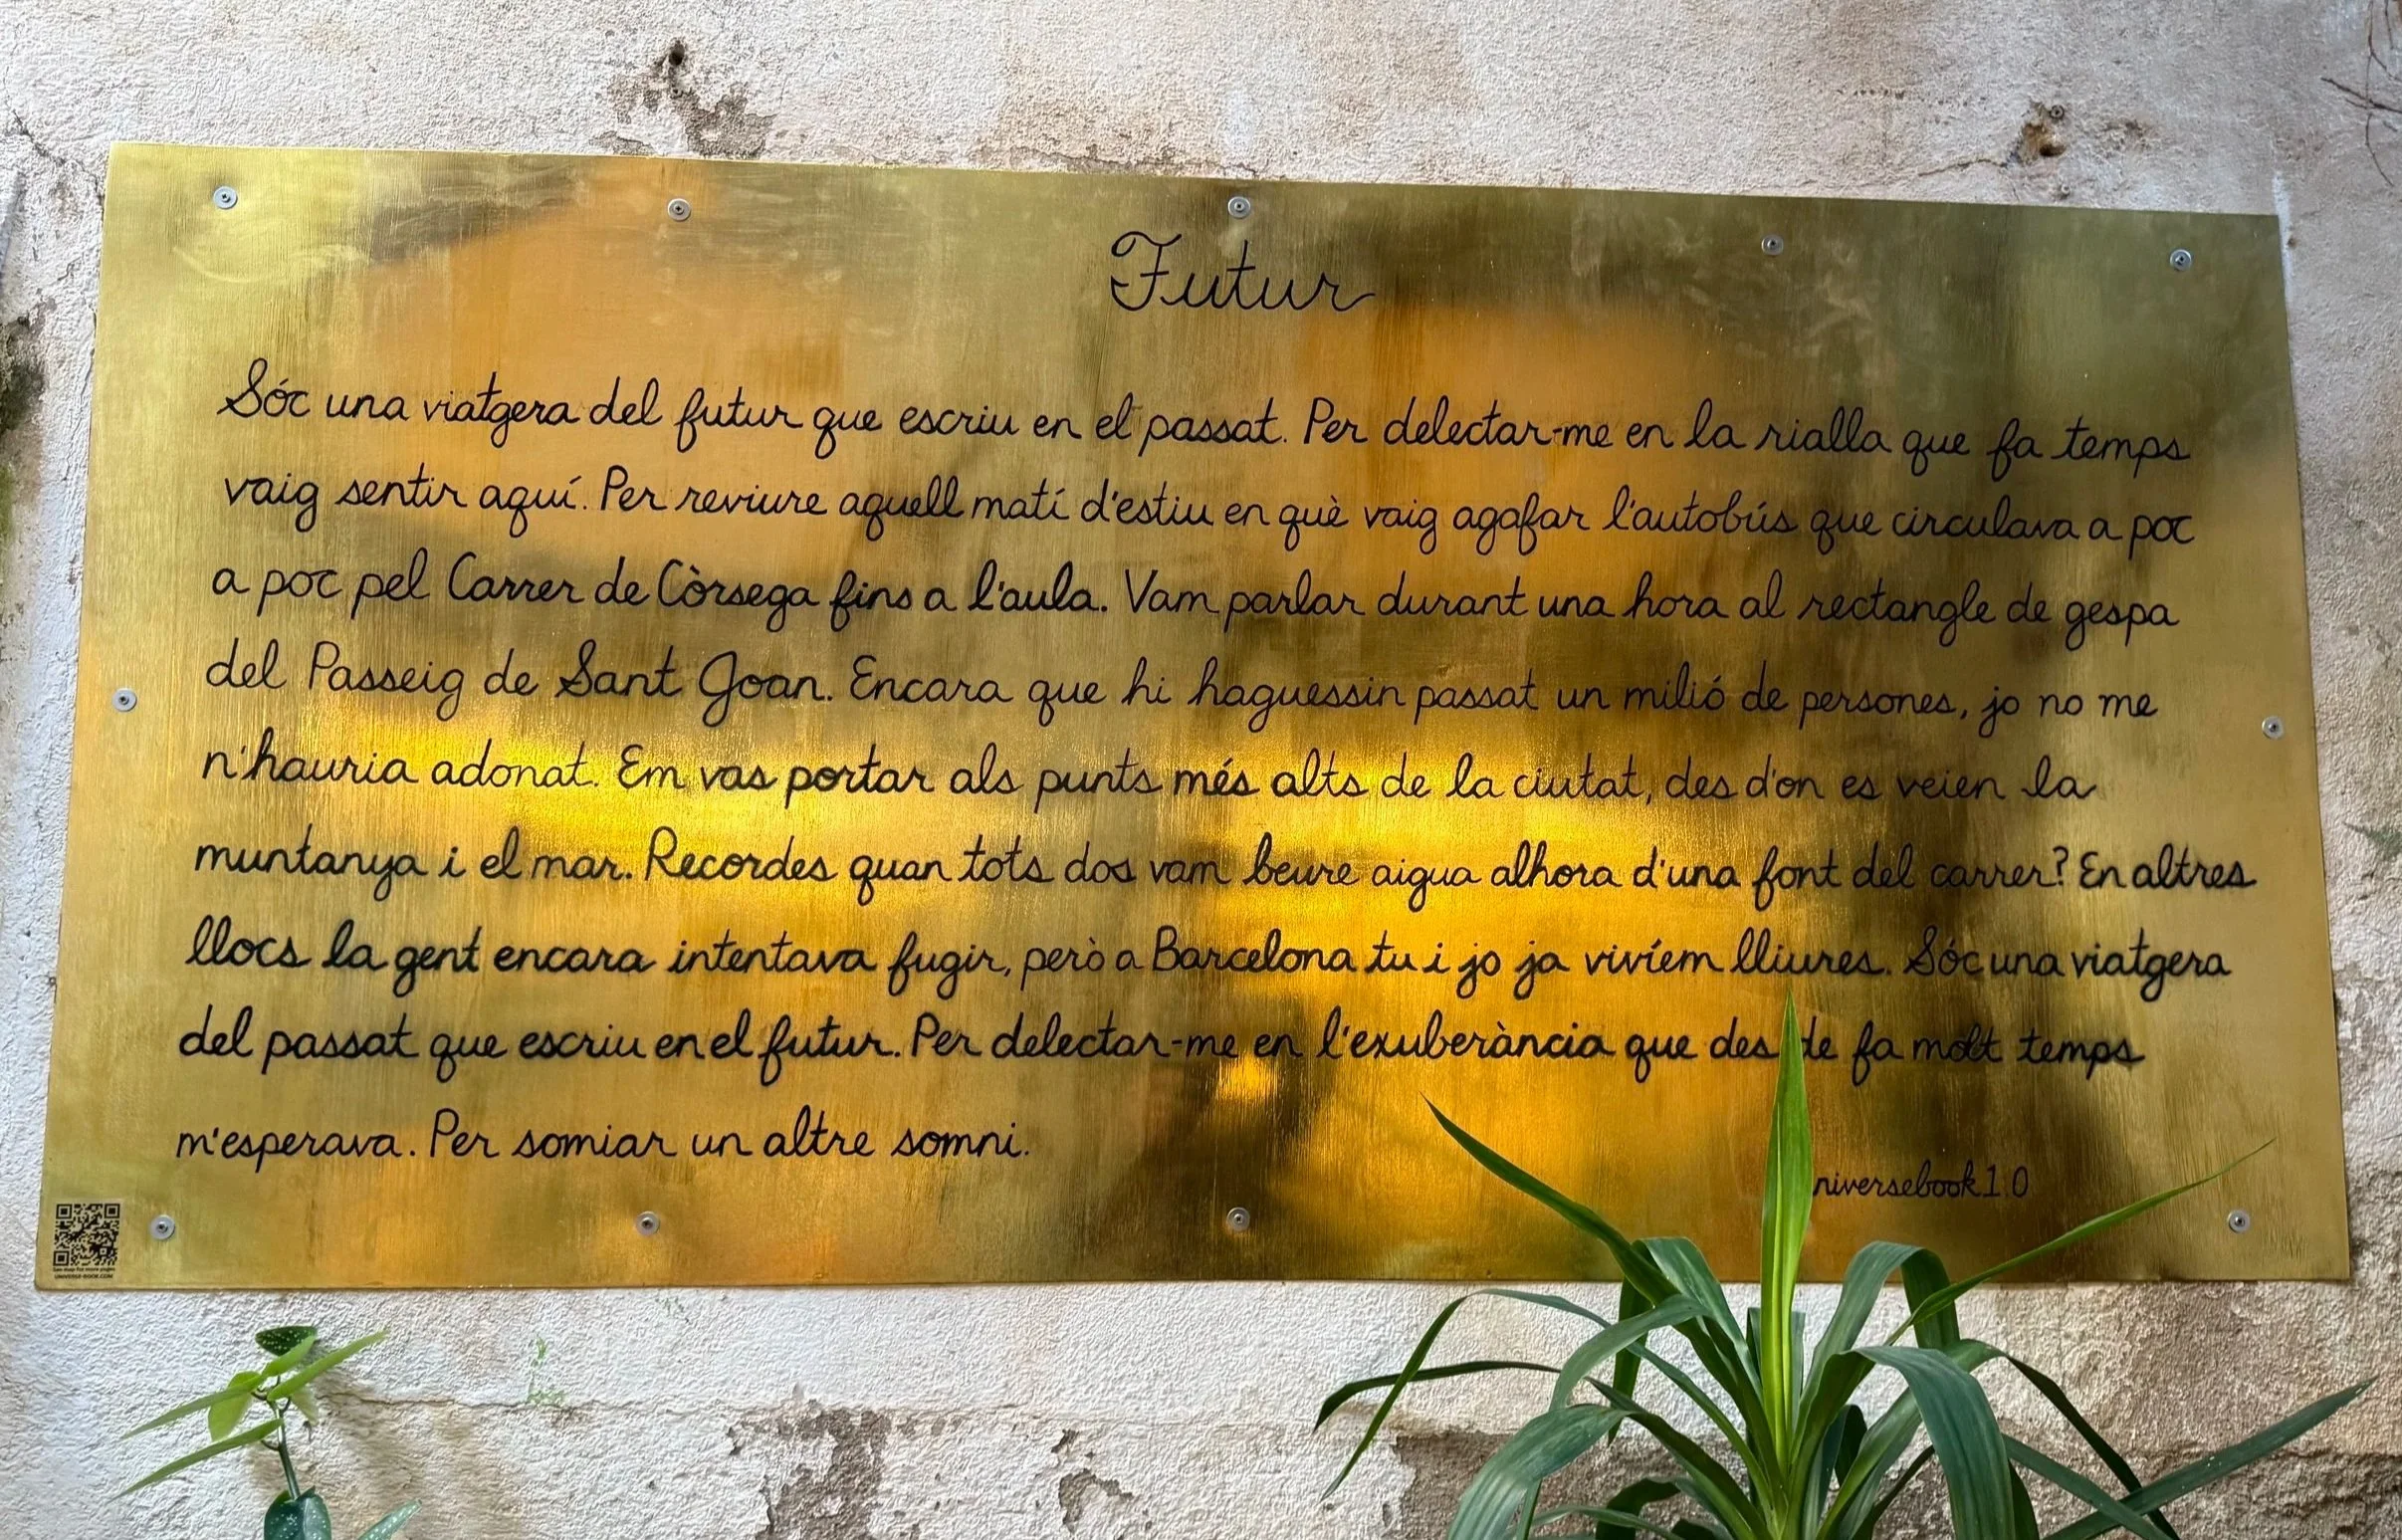 Futur
Sóc una viatgera del futur que escriu en el passat. Per delectar-me en la rialla que fa temps
vaig sentir aquí. Per reviure aquell matí d'estiu en què vaig agafar l'autobús que circulava a poc
a poc pel Carrer de Còrsega fins a l'aula. Vam parlar durant una hora al rectangle de gespa
del Passeig de Sant Joan. Encara que hi haguessin passat un milió de persones, jo no me
n'hauria adonat. Em vas portar als punts més alts de la ciutat, des d'on es veien la
muntanya i el mar. Recordes quan tots dos vam beure aigua alhora d'una font del carrer? En altres
llocs la gent encara intentava fugir, però a Barcelona tu i jo ja vivíem lliures. Sóc una viatgera
del passat que escriu en el futur. Per delectar-me en l'exuberància que des de fa molt temps
m'esperava. Per somiar un altre somni.
niversebook 1.0
UNIVERSE-BOOK.COM